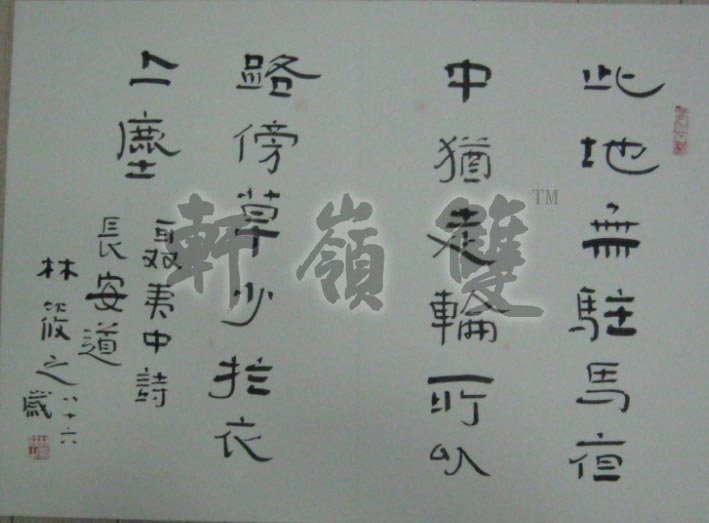 此地無駐馬夜
中猶走輪所以
路傍草少於衣
上塵
聶夷中詩
長安道
林筱之八十六
歲
雙嶺軒™